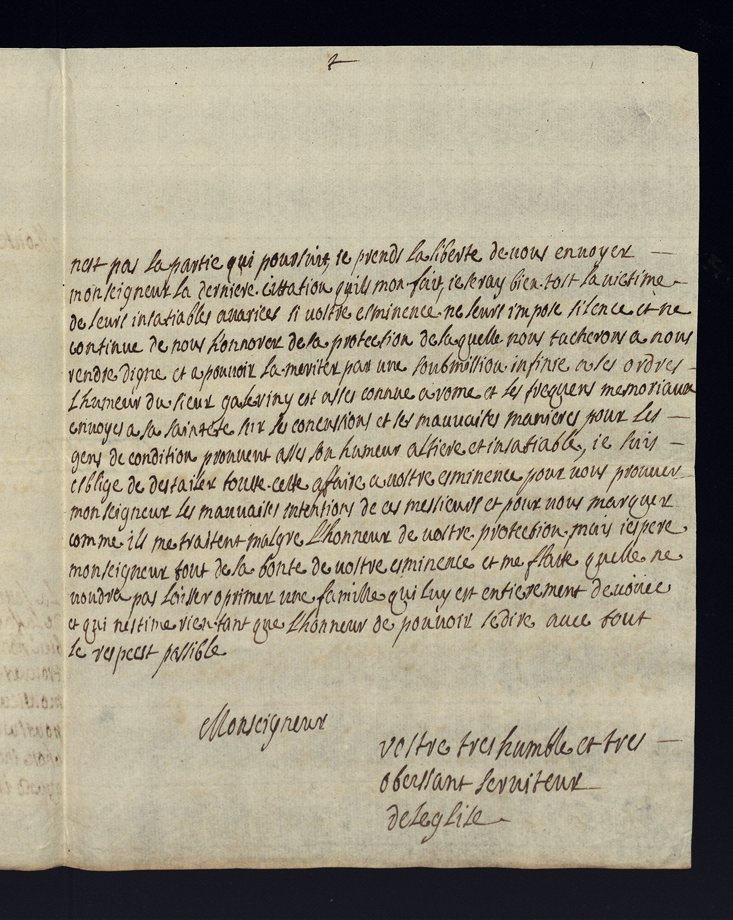 2
nest pas la partie qui poursuit, ie prends la liberte de vous envoyer
monseigneur la derniere citation quils mon fait, ie seray bien tost la victime
de leurs insatiables avarices si vostre esminence ne leurs impose silence et ne
continue de nous honnorer de sa protection de laquelle nous tacherons a nous
rendre digne et a pouvoir la meriter par une soubmission infinie a ses ordres
Lhumeur du sieur galeriny est asses connue a rome et les frequens memoriaux
envoyes a sa saintete sur ses concussions et ses mauvaises manieres pour les
gens de condition prouvent asses son humeur altiere et insatiable, ie suis
oblige de destailer toutte cette affaire a vostre esminence pour vous prouver
monseigneur les mauvaises intentions de ces messieurs et pour vous marquer
comme ils me traittent malgre Lhonneur de vostre protection mais iespere
monseigneur tout de la bonte de vostre esminence et me flatte quelle ne
voudra pas laisser oprimer une famille qui luy est entierement devouee
et qui nestime rien tant que Lhonneur de pouvoir se dire avec tout
le respect possible
Monseigneur
vostre tres humble et tres
obeissant serviteur
deleglise